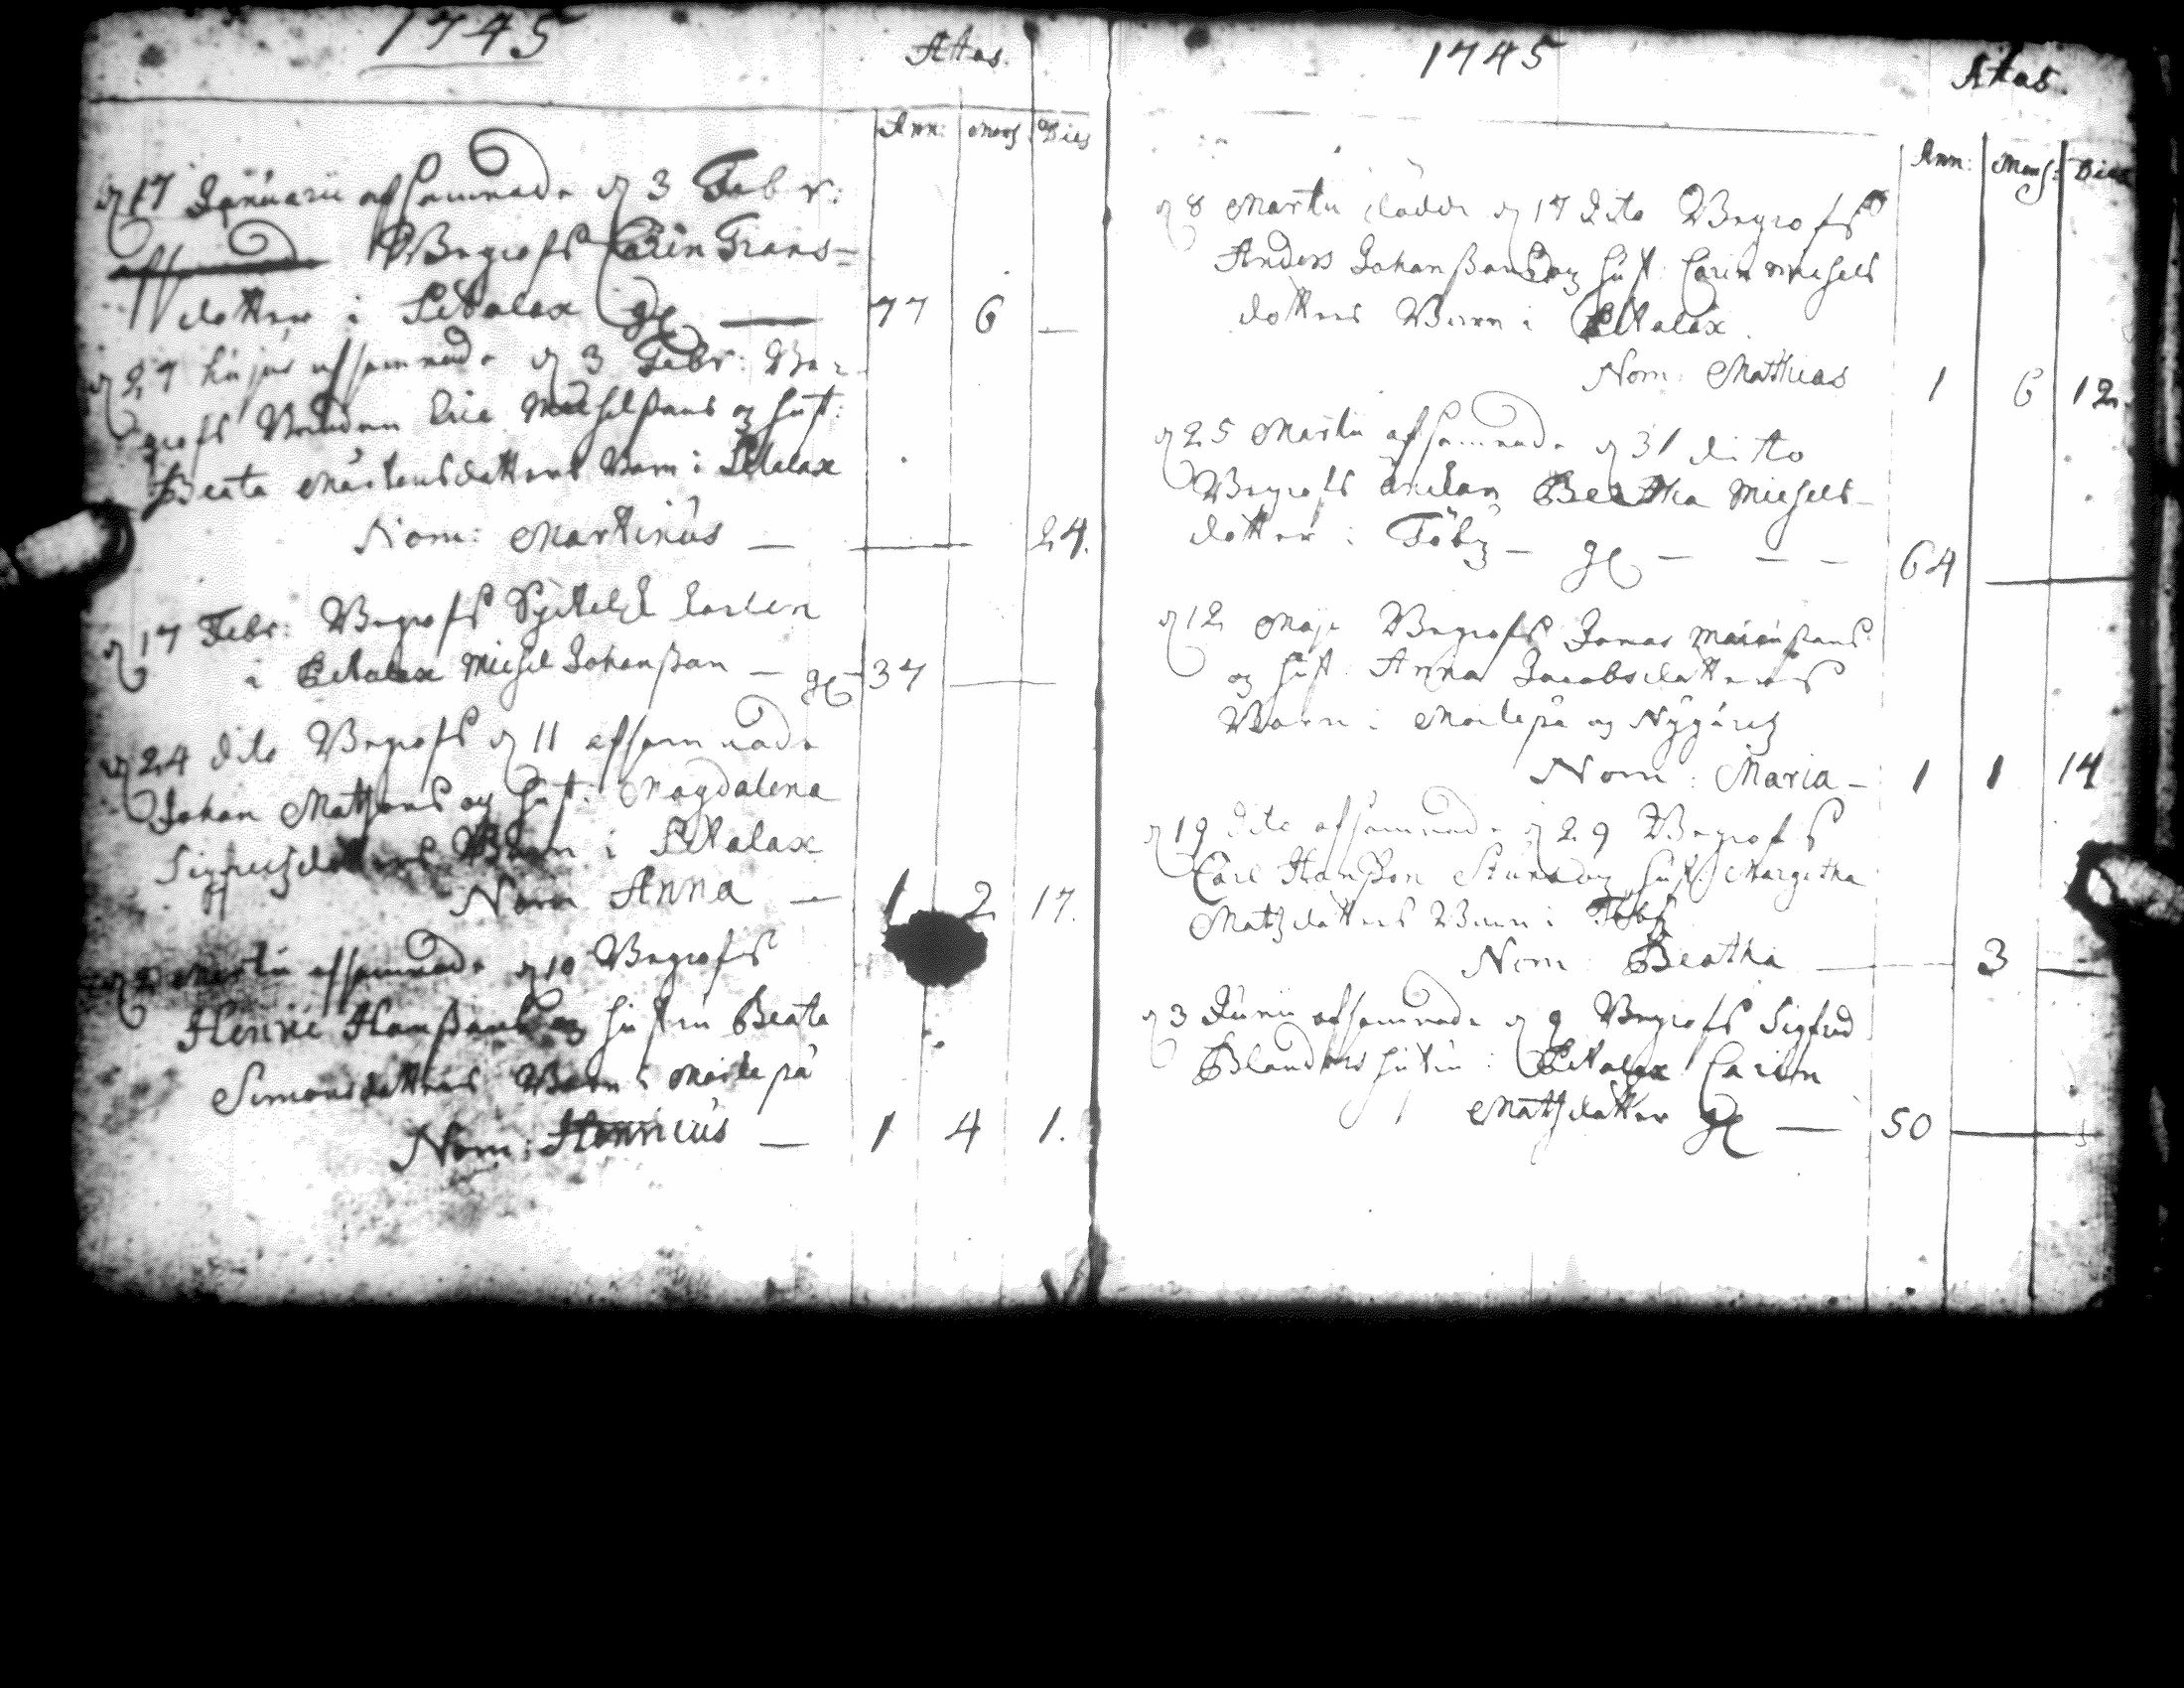 1745
Ætas.
Ann: Mens Dies
d 17 Januarii afsomnade d 3 Febr:
Begrofs Carin Frans=
dotter i Petalax gl — 77 6 —
d 27 hujus afsomnade d 3 Febr: Be=
grofs Bonden Eric Michelssons og Hust:
Beata Mårtensdotters Barn i Petalax
Nom: Martinus — — 24.
d 17 Febr: Begrofs
i Petalax Michel Johansson — gl 37 —
d 24 dito Begrofs d 11 afsomnade
Johan Matssons og Hust: Magdalena
Sigfredsdotters Barn i Petalax
Nom Anna — 1 2 17.
d 2 Martii afsomnade d 10 Begrofs
Henric Hanssons og Hustru Beata
Simonsdotters Barn i Molpå
Nom: Henricus — 1 4 1.
1745
Ætas.
Ann: Mens: Dies
d 8 Martii dödde d 17 dito Begrofs
Anders Johanssons og Hust: Carin Michels
dotters Barn i Petalax
Nom: Matthias 1 6 12.
d 25 Martii afsomnade d 31 ditto
Begrofs Enkan Beatha Michels-
dotter i Töby — gl — — — 64 —
d 12 Maji Begrofs Jonas
og Hust: Anna Jacobsdotters
Barn i Molpå og Nygård
Nom: Maria — 1 1 14
d 19 dito afsomnade d 29 Begrofs
Carl Hansson og Hust: Margetha
Matsdotters Barn i Töby
Nom: Beatha — 3 —
d 3 Junii afsomnade d 9 Begrofs Sigfred
Blanders Hustru i Petalax Carin
Matsdotter gl — 50 —